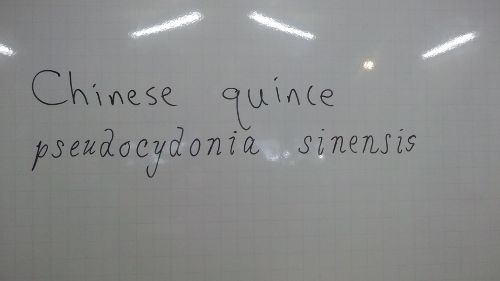 Chinese quince
pseudocydonia sinensis